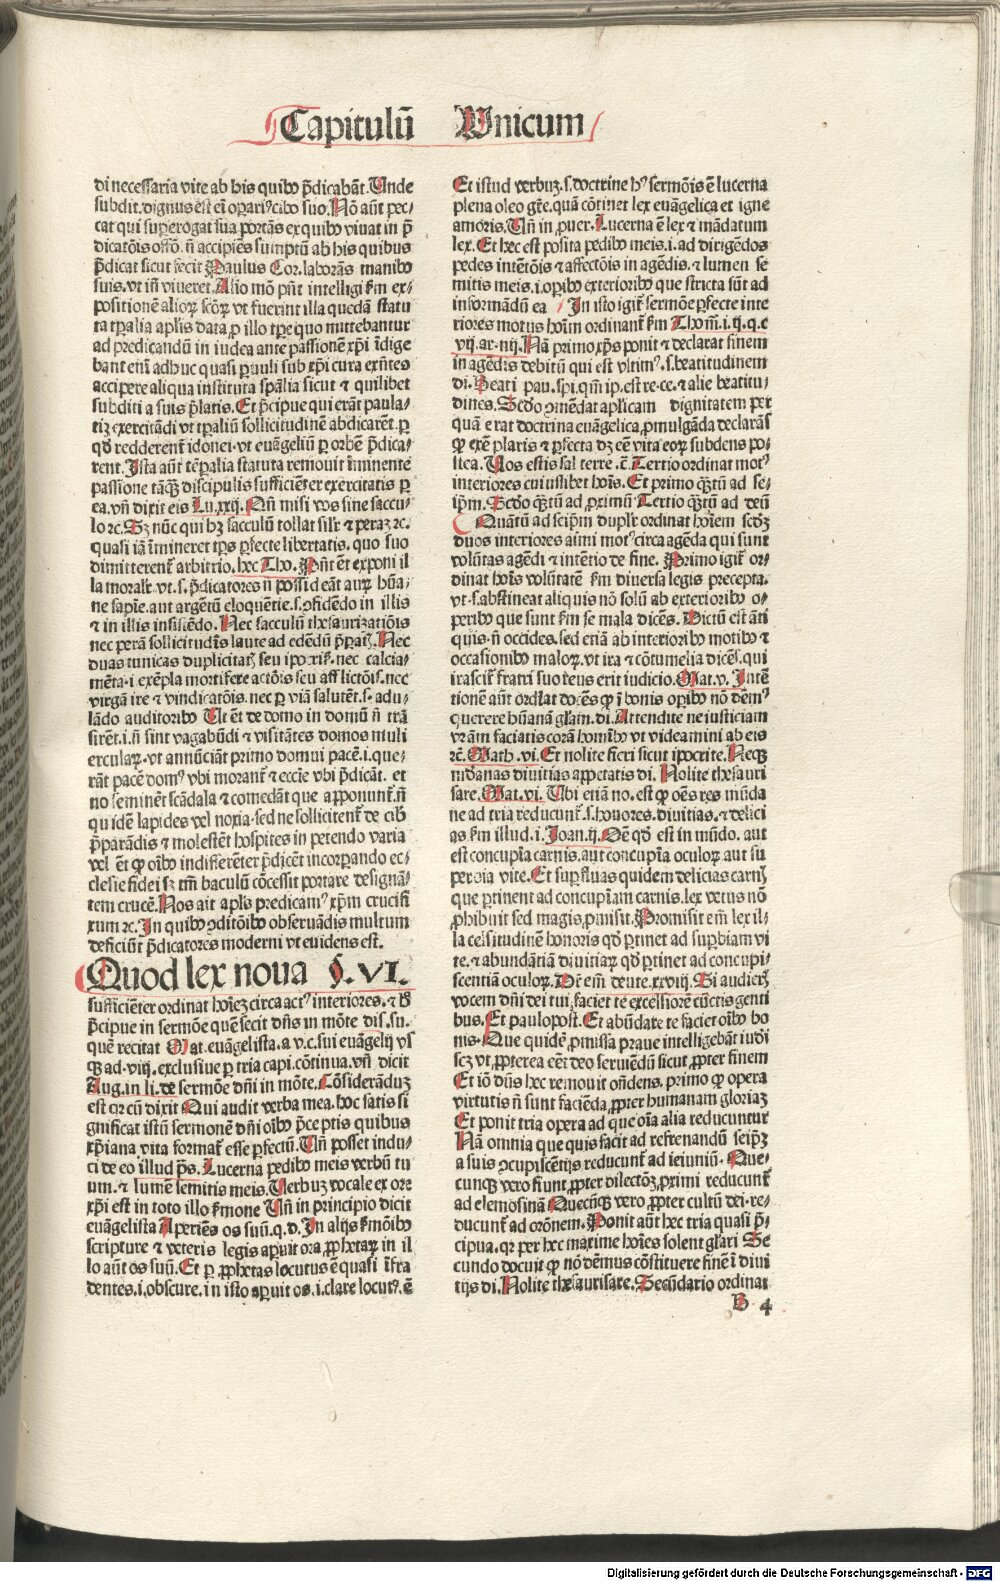 Capitulū Vnicum
di necessaria vite ab his quibꝰ p̄dicabāt. Vnde
subdit. dignus ē̄st ei opariꝰ cibo suo. Nō aūt pec-
cat qui superogat sua portās ex quibꝰ viuat in p̄
dicatōis offō. n̄ accipiēs sumptū ab his quibus
p̄dicat sicut fecit Paulus Cor. laborās manibꝰ
suis. vt ip̄i viueret. Alio mō pn̄t intelligi ẜm ex-
positionē alioꝝ scōꝝ vt fuerint illa quedā statu
ta tꝑalia aplis data ꝓ illo tꝑe quo mittebantur
ad predicandū in iudea ante passionē xp̄i īdige
bant enī adhuc quasi ꝑuuli sub xp̄i cura exn̄tes
accipere aliqua instituta spālia sicut ⁊ quilibet
subditi a suis p̄latis. Et p̄cipue qui erāt paula-
tiꝫ exercitādi vt tꝑaliū sollicitudinē abdicarēt. ꝑ
qḋ redderent̄ idonei. vt euāgeliū ꝑ orbē p̄dica-
rent. Ista aūt tēꝑalia statuta remouit īminente
passione tāqꝫ discipulis sufficiēter exercitatis ꝑ
ea. vn̄ dixit eis Lu. xxij. Qn̄ misi vos sine saccu-
lo ⁊c. Sꝫ nūc qui hꝫ sacculū tollat silr̄ ⁊ peraꝫ ⁊c.
quasi iā īmineret tp̄s ꝑfecte libertatis. quo suo
dimitterent̄ arbitrio. hec Tho. Pn̄t ēt exponi il
la moralr̄. vt. s. p̄dicatores n̄ possideāt auꝝ hūa-
ne sapīe. aut argētū eloquētie. s. ꝯfidēdo in illis
⁊ in illis insistēdo. Nec sacculū thesaurizatiōis
nec perā sollicitudīs laute ad edēdū p̄paratꝫ. Nec
duas tunicas duplicitatꝫ seu ipoxiẜ. nec calcia-
mēta. i exēpla mortifere actōis seu afflictōis. nec
virgā ire ⁊ vindicatōis. nec ꝑ viā salutēt. s. adu-
lādo auditoribꝰ Ult ēt de domo in domū n̄ trā
sirēt. i. n̄ sint vagabūdi ⁊ visitātes domos muli
erculaꝝ. vt annūciāt primo domui pacē. i. que-
rāt pacē domꝰ vbi morant̄ ⁊ eccīe vbi p̄dicāt. et
no seminēt scādala ⁊ comedāt que apponunt̄. n̄
quidē lapides vel noxia. sed ne sollicitent̄ de cib̄
p̄parādis ⁊ molestēt hospites in petendo varia
vel ēt ꝙ oībꝰ indifferēter p̄dicēt incorꝑando ec-
clesie fidei sꝫ tm̄ baculū cōcessit portare designā-
tem crucē. Nos ait apl̄s predicamꝰ xp̄m crucifi
xum ⁊c. In quibꝰ ꝯditōibꝰ obseruādis multum
deficiūt p̄dicatores moderni vt euidens est.
Quod lex noua §. VI.
sufficiēter ordinat hoīeꝫ circa actꝰ interiores. ⁊ ħ
p̄cipue in sermōe quē fecit dn̄s in mōte dis. su.
quē recitat Mat. euāgelista. a v. c. sui euāgelij vs
qꝫ ad. viij. exclusiue ꝑ tria capi. cōtinua. vn̄ dicit
Aug. in li. de sermōe dn̄i in mōte. Cōsiderāduꝫ
est qꝛ cū dixit Qui audit verba mea. hoc satis si
gnificat istū sermonē dn̄i oībꝰ p̄ceptis quibus
xp̄iana vita format̄ esse ꝑfectū. Un̄ posset indu-
ci de eo illud p̄s. Lucerna pedibꝰ meis verbū tu
um. ⁊ lumē semitis meis. Verbuꝫ vocale ex ore
xp̄i est in toto illo ẜmone Un̄ in principio dicit
euāgelista Aperiēs os suū. q. d. In alijs ẜmōibꝰ
scripture ⁊ veteris legis aꝑuit ora ꝓphetaꝝ in il
lo aūt os suū. Et ꝑ ꝓphetas locutus ē quasi īfra
dentes. i. obscure. in isto aꝑuit os. i. clare locutꝰ. ē
Et istud verbuꝫ. s. doctrine hꝰ sermōis ē lucerna
plena oleo gr̄e. quā cōtinet lex euāgelica et igne
amoris. Un̄ in ꝓuer. Lucerna ē lex ⁊ mādatum
lex. Et hec est posita pedibꝰ meis. i. ad dirigēdos
pedes intētōis ⁊ affectōis in agēdis. ⁊ lumen se
mitis meis. i. oꝑibꝰ exterioribꝰ que stricta sūt ad
informādū ea In isto igit̄ sermōe ꝑfecte inte
riores motus hoīm ordinant̄ ẜm Thom̄. i. ij. q. c
vij. ar. iij. Nā primo xp̄s ponit ⁊ declarat finem
in agēdis debitū qui est vltimꝰ. s. beatitudinem
di. Beati pau. spi. qm̄ ip. est re. ce. ⁊ alie beatitu-
dines. Scḋo ꝯmēdat aplicam dignitatem per
quā erat doctrina euāgelica. ꝓmulgāda declarās
ꝙ exn̄ plaris ⁊ ꝑfecta dꝫ eē vita eoꝝ subdens po-
stea. Uos estis sal terre. ⁊c̄. Tertio ordinat motꝰ
interiores cuiuslibet hoīs. Et primo qꝫtū ad se-
ip̄m. Scḋo qꝫtū ad ꝓximū Tertio qꝫtū ad deū
Quātū ad seip̄m duplr̄ ordinat hoīem scḋꝫ
duos interiores aīmi motꝰ circa agēda qui sunt
volūtas agēdi ⁊ intētio de fine. Primo igit̄ or-
dinat hoīs volūtatē ẜm diuersa legis precepta.
vt. s. abstineat aliquis nō solū ab exterioribꝰ o-
peribꝰ que sunt ẜm se mala dicēs. Dictū est āti
quis. n̄ occides. sed etiā ab interioribꝰ motibꝰ ⁊
occasionibꝰ maloꝝ. vt ira ⁊ cōtumelia dicēs. qui
irascit̄ fratri suo reus erit iudicio. Mat. v. Intē
tionē aūt ordīat docēs ꝙ ī bonis oꝑibꝰ nō dēmꝰ
querere hūanā gl̄iam. di. Attendite ne iusticiam
vr̄am faciatis corā homībꝰ vt videamini ab eis
⁊c̄. Math. vi. Et nolite fieri sicut ipocrite. Neqꝫ
mūdanas diuitias appetatis di. Nolite thesauri
sare. Mat. vi. Ubi etiā no. est ꝙ oēs res mūda
ne ad tria reducunt̄. s. honores. diuitias. ⁊ delici
as ẜm illud. i. Joan. ij. Om̄e qḋ est in mūdo. aut
est concupīa carnis. aut concupīa oculoꝝ aut su
perbia vite. Et suꝑfluas quidem delicias carnis
que ꝑtinent ad concupīam carnis. lex vetus nō
ꝓhibuit sed magis ꝓmisit. Promisit em̄ lex il-
la celsitudinē honoris qḋ ꝑtinet ad suꝑbiam vi
te. ⁊ abundātiā diuitiaꝝ qḋ ꝑtinet ad concupi-
scentiā oculoꝝ. Dr̄ em̄ deute. xxviij. Si audieris
vocem dn̄i dei tui. faciet te excelsiorē cūctis genti
bus. Et paulopost. Et abūdate te faciet oībꝰ bo
nis. Que quidē ꝓmissa praue intelligebāt iudi
scꝫ vt ꝓpterea eēt deo seruiēdū sicut ꝓpter finem
Et iō dn̄s hec remouit on̄dens. primo ꝙ opera
virtutis n̄ sunt faciēda ꝓpter humanam gloriaꝫ
Et ponit tria opera ad que oīa alia reducuntur
Nā omnia que quis facit ad refrenandū seip̄ꝫ
a suis ꝯcupiscētijs reducunt̄ ad ieiuniū. Que-
cunqꝫ vero fiunt ꝓpter dilectōꝫ ꝓximi reducunt̄
ad elemosinā Quecūqꝫ vero ꝓpter cultū dei. re-
ducunt̄ ad orōnem. Ponit aūt hec tria quasi p̄-
cipua. qꝛ per hec maxime hoīes solent gl̄iari Se
cundo docuit ꝙ nō dēmus cōstituere finē ī diui
tijs di. Nolite thesaurisare. Secūdario ordinat
B 4
Digitalisierung gefördert durch die Deutsche Forschungsgemeinschaft - DFG